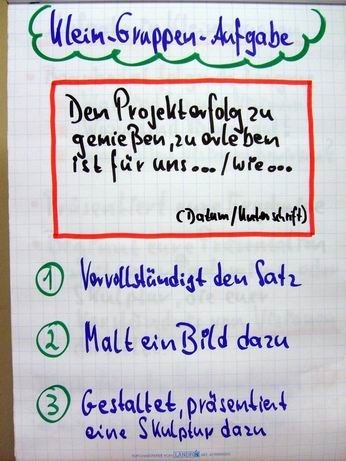 Klein-Gruppen-Aufgabe
Den Projekterfolg zu
genießen, zu erleben
ist für uns ... / wie ...
(Datum/Unterschrift)
1 Vervollständigt den Satz
2 Malt ein Bild dazu
3 Gestaltet, präsentiert
eine Skulptur dazu
LANDRÉ